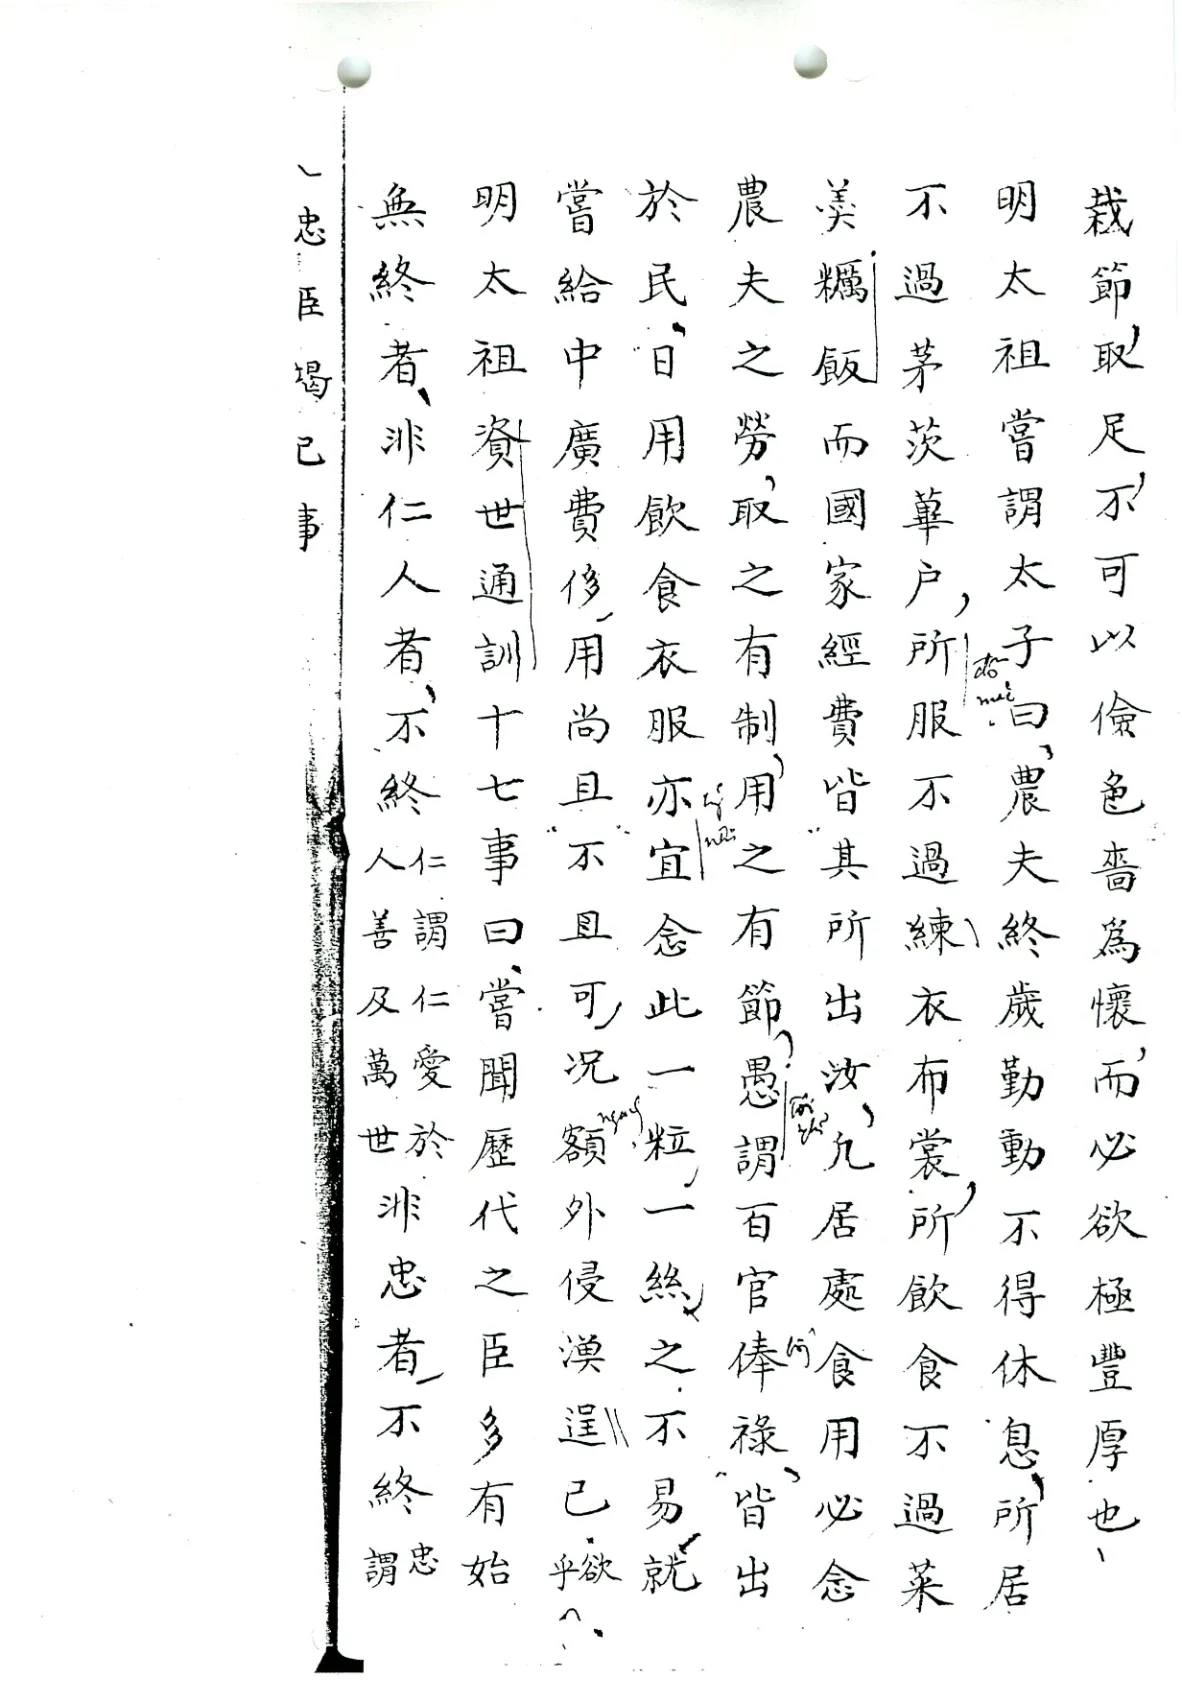 栽節取足不可以儉色嗇爲懷而必欲極豐厚也
明太祖嘗謂太子曰農夫終歲勤動不得休息所居
不過茅茨蓽户所服不過練衣布裳所飲食不過菜
羙糲飯而國家經費皆其所出汝凡居處食用必念
農夫之勞取之有制用之有節愚謂百官俸祿皆出
於民日用飲食衣服亦宜念此一粒一絲之不易就
嘗給中廣費侈用尚且不且可况額外侵漁逞己欲乎
明太祖資世通訓十七事曰嘗聞歷代之臣多有始
無終者非仁人者不終仁謂仁愛於人善及萬世非忠者不終忠謂
忠臣竭己事
ngay